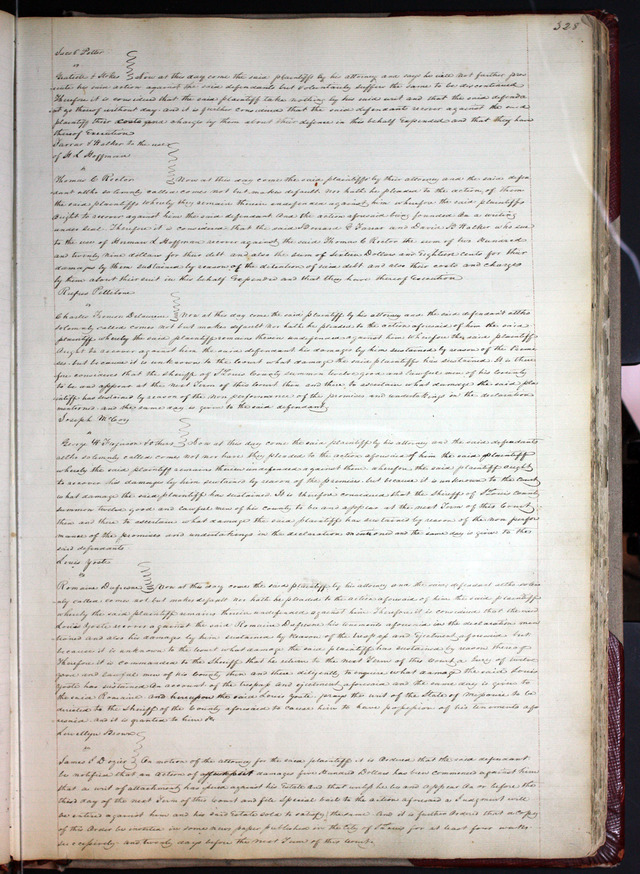 328
Jacob Peller
"
& Stokes Now at this day come the said plaintiffs by his attorney and says he will not further pros
ecute his action against the said defendants but voluntarily suffers the same to be discontinued
Therefore it is considered that the said plaintiff take nothing by his said writ and that the said defenda
nt go thereof without day. And it is further considered that the said defendants recover against the said
plaintiff their costs and charges by them about their defence in this behalf Expended and that they have
thereof Execution
Farrar & Walker to the use
of H. L. Hoffman
"
Thomas C. Rector Now at this day come the said plaintiffs by their attorney and the said defen
dant altho solemnly called comes not but makes default. Nor hath he pleaded to the action of them
the said plaintiffs whereby they remain therein undefended against him wherefore the said plaintiffs
Ought to recover against him the said defendant And the action aforesaid being founded on a writing
under seal. Therefore it is considered that the said Bernard G. Farrar and David Walker who sue
to the use of Herman L Hoffman recover against the said Thomas C Rector the sum of two Hundred
and twenty nine dollars for their debt and also the sum of Sixteen Dollars and Eighteen cents for their
damages by them sustained by reason of the detention of said debt and also their costs and charges
by them about their suit in this behalf Expended and that they have thereof Execution
Rufus Pettibone
"
Charles Fremon Delauriere Now at this day come the said plaintiff by his attorney and the said defendant altho
solemnly called comes not but makes default Nor hath he pleaded to the action aforesaid of him the said
plaintiff whereby the said plaintiff remains therein undefended against him Wherefore the said plaintiff
Ought to recover against him the said defendant his damages by him sustained by reason of the premi
ses. but because it is unknown to the Court what damage the said plaintiff has sustained. It is there
fore considered that the Sheriff of St Louis County summon twelve good and lawful men of his County
to be and appear at the next Term of this Court then and there to ascertain what damage the said pla
intiff has sustained by reason of the non performance of the promises and undertakings in the declaration
mentioned and the same day is given to the said defendant
Joseph McCoy
"
George H. Ferguson & others Now at this day come the said plaintiff by his attorney and the said defendants
altho solemnly called comes not nor have they pleaded to the action aforesaid of him the said plaintiff
whereby the said plaintiff remains therein undefended against them wherefore the said plaintiff Ought
to recover his damages by him sustained by reason of the premises. but because it is unknown to the Court
what damage the said plaintiff has sustained It is therefore considered that the Sheriff of St Louis County
summon twelve good and lawful men of his county to be and appear at the next Term of this Court
then and there to ascertain what damage the said plaintiff has sustained by reason of the non perfor
mance of the promises and undertakings in the declaration mentioned and the same day is given to the
said defendants
Louis Yoste
"
Romaine Dufresne Now at this day come the said plaintiff by his attorney and the said defendant altho solem
nly called comes not but makes default Nor hath he pleaded to the action aforesaid of him the said plaintiff
whereby the said plaintiff remains therein undefended against him Therefore it is considered that the said
Louis Yoste recover against the said Romaine Dufresne his tenements aforesaid in the declaration men
tioned and also his damages by him sustained by reason of the trespass and Ejectment aforesaid but
because it is unknown to the Court what damage the said plaintiff has sustained by reason thereof
Therefore it is commanded to the Sheriff that he return to the next Term of this Court a Jury of twelve
good and lawful men of his County then and there diligently to enquire what damage the said Louis
Yoste has sustained on account of the trespass and ejectment aforesaid and the same day is given to
the said Romaine and hereupon the said Louis Yoste prays the writ of the State of Missouri to be
directed to the Sheriff of the County aforesaid to cause him to have possession of his tenements afo
resaid and it is granted to him &c
Llewellyn Brown
"
James S. Dozier On motion of the attorney for the said plaintiff it is Ordered that the said defendant
be notified that an Action of assumpsit damages five Hundred Dollars has been commenced against him
that a writ of attachment has issued against his Estate And that unless he be and appear on or before the
third day of the next Term of this Court and file special bail to the action aforesaid a Judgment will
be entered against him and his said Estate sold to satisfy the same. And it is further Ordered that a copy
of this Order be inserted in some news paper published in the City of St Louis for at least four weeks
successively and twenty days before the next Term of this Court.